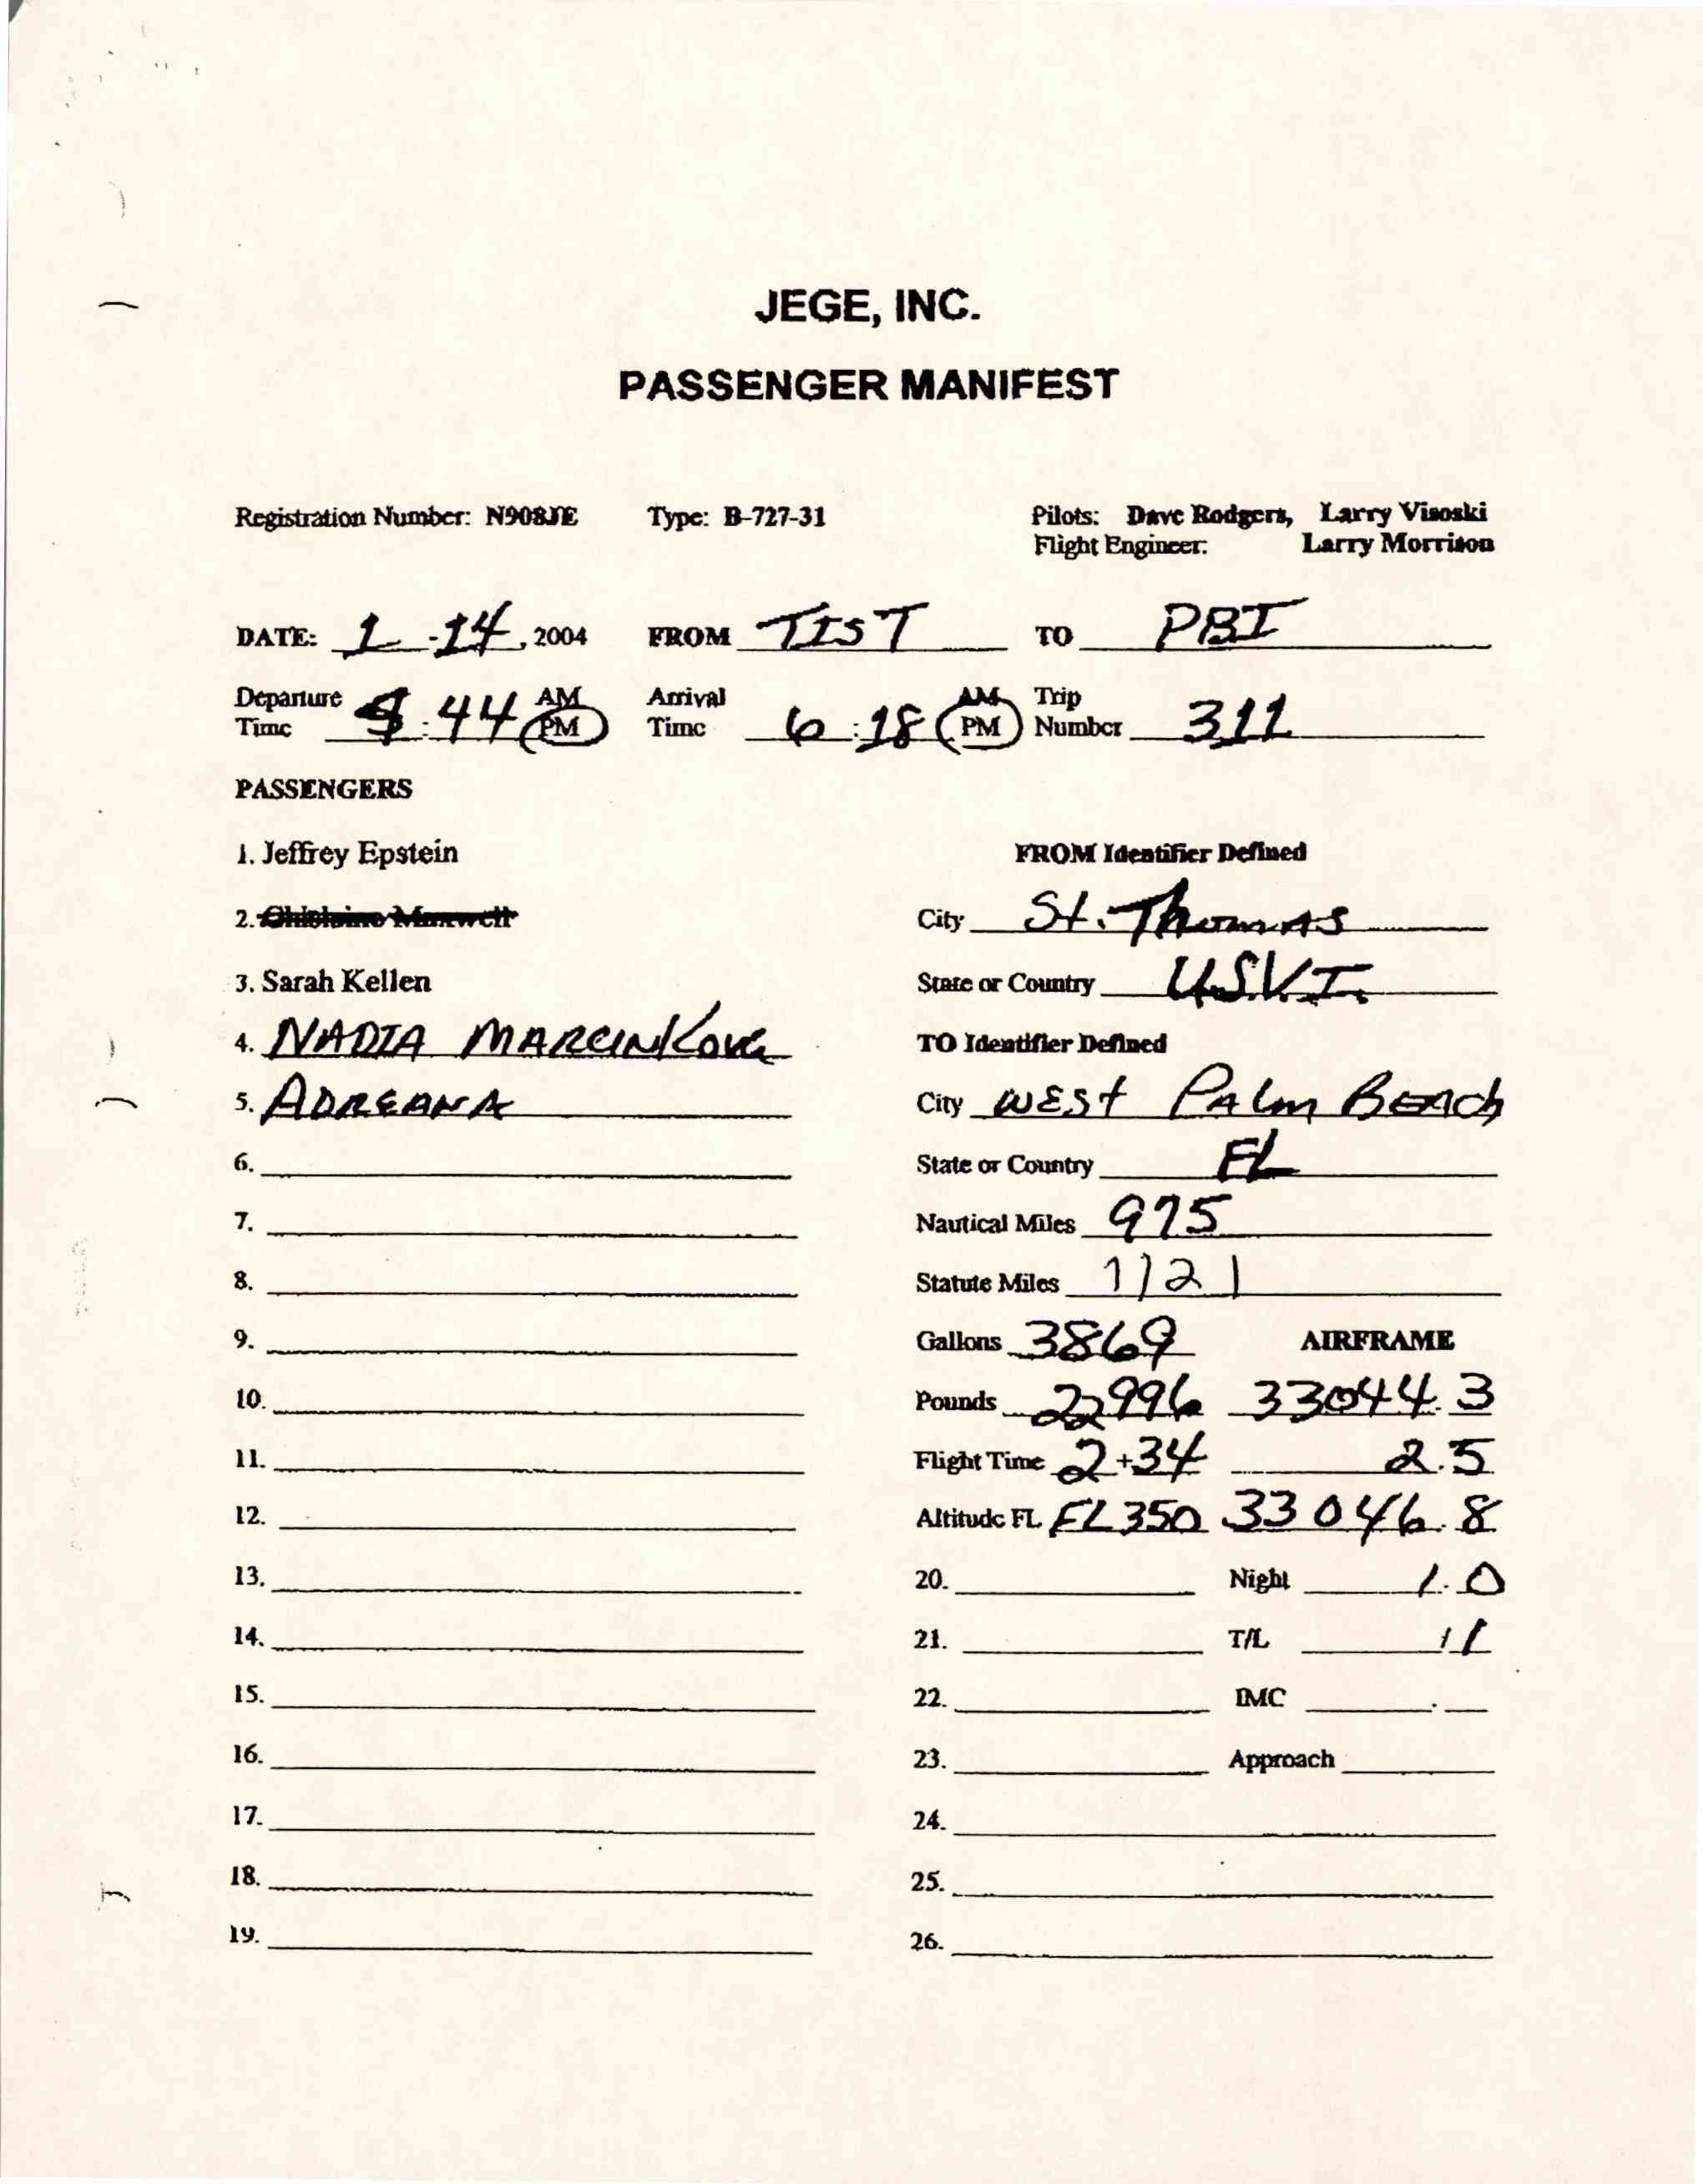 JEGE, INC.
PASSENGER MANIFEST
Registration Number: N908JE Type: B-727-31 Pilots: Dave Rodgers, Larry Visoski
Flight Engineer: Larry Morrison
DATE: 1-14, 2004 FROM TIST TO PBI
Departure Time :44 AM PM Arrival Time 6:18 AM PM Trip Number 311
PASSENGERS
1. Jeffrey Epstein FROM Identifier Defined
2. Ghislaine Maxwell City St. Thomas
3. Sarah Kellen State or Country U.S.V.I.
4. NADIA MARCINKOVA TO Identifier Defined
5. ADREANA City WEST PALM BEACH
6. State or Country FL
7. Nautical Miles 975
8. Statute Miles 1121
9. Gallons 3869 AIRFRAME
10. Pounds 22996 33044.3
11. Flight Time 2+34 2.5
12. Altitude FL FL350 33046.8
13. 20. Night 1.0
14. 21. T/L 1/
15. 22. IMC .
16. 23. Approach
17. 24.
18. 25.
19. 26.